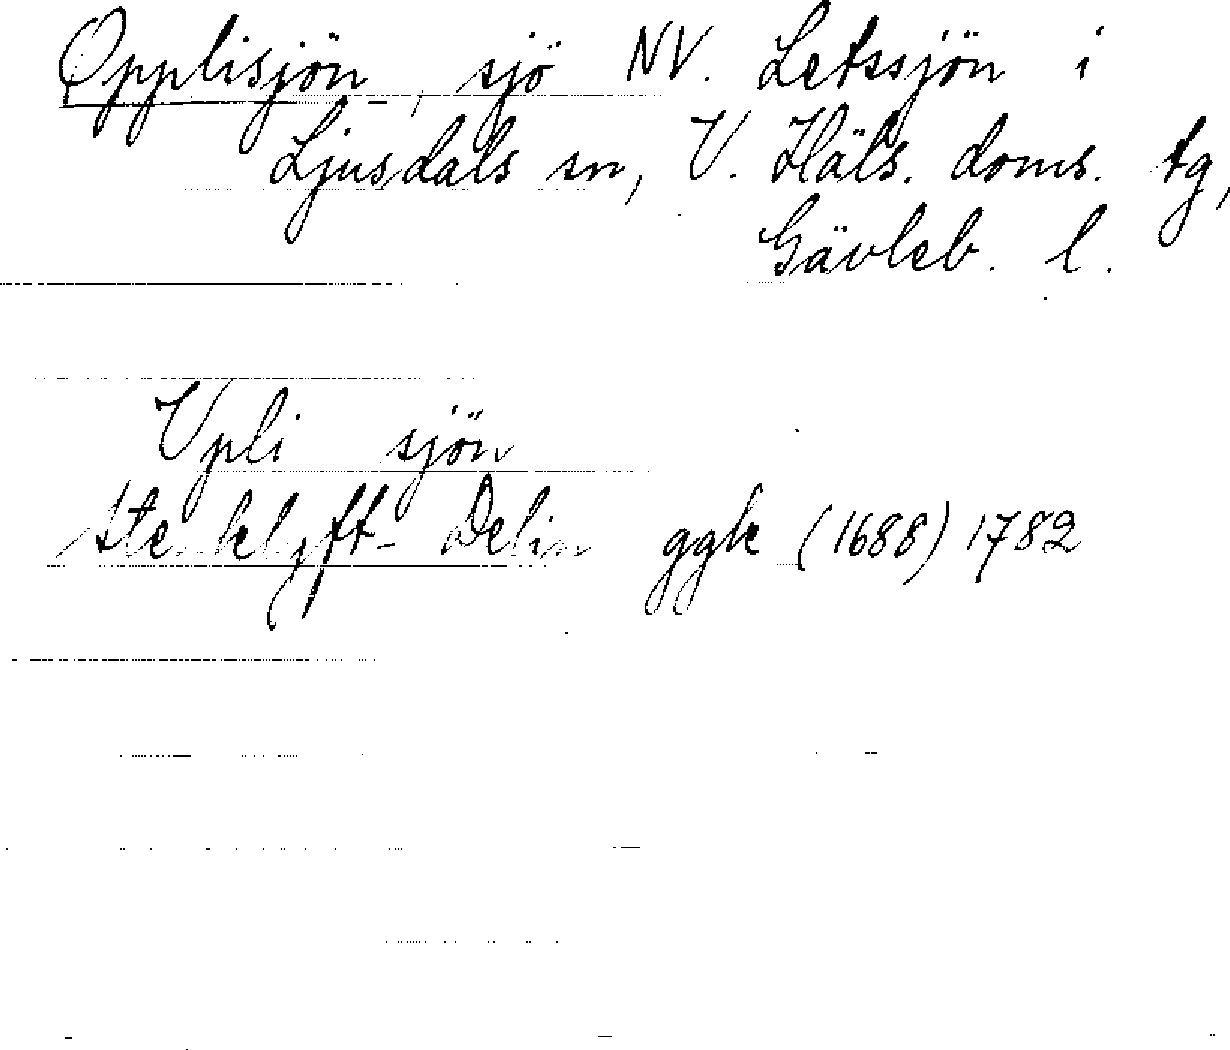 Opplisjön, sjö NV. Letssjön i
Ljusdals sn, V. Häls. doms. tg,
Gävleb. l.
Upli sjön
Delin ggk (1688) 1782